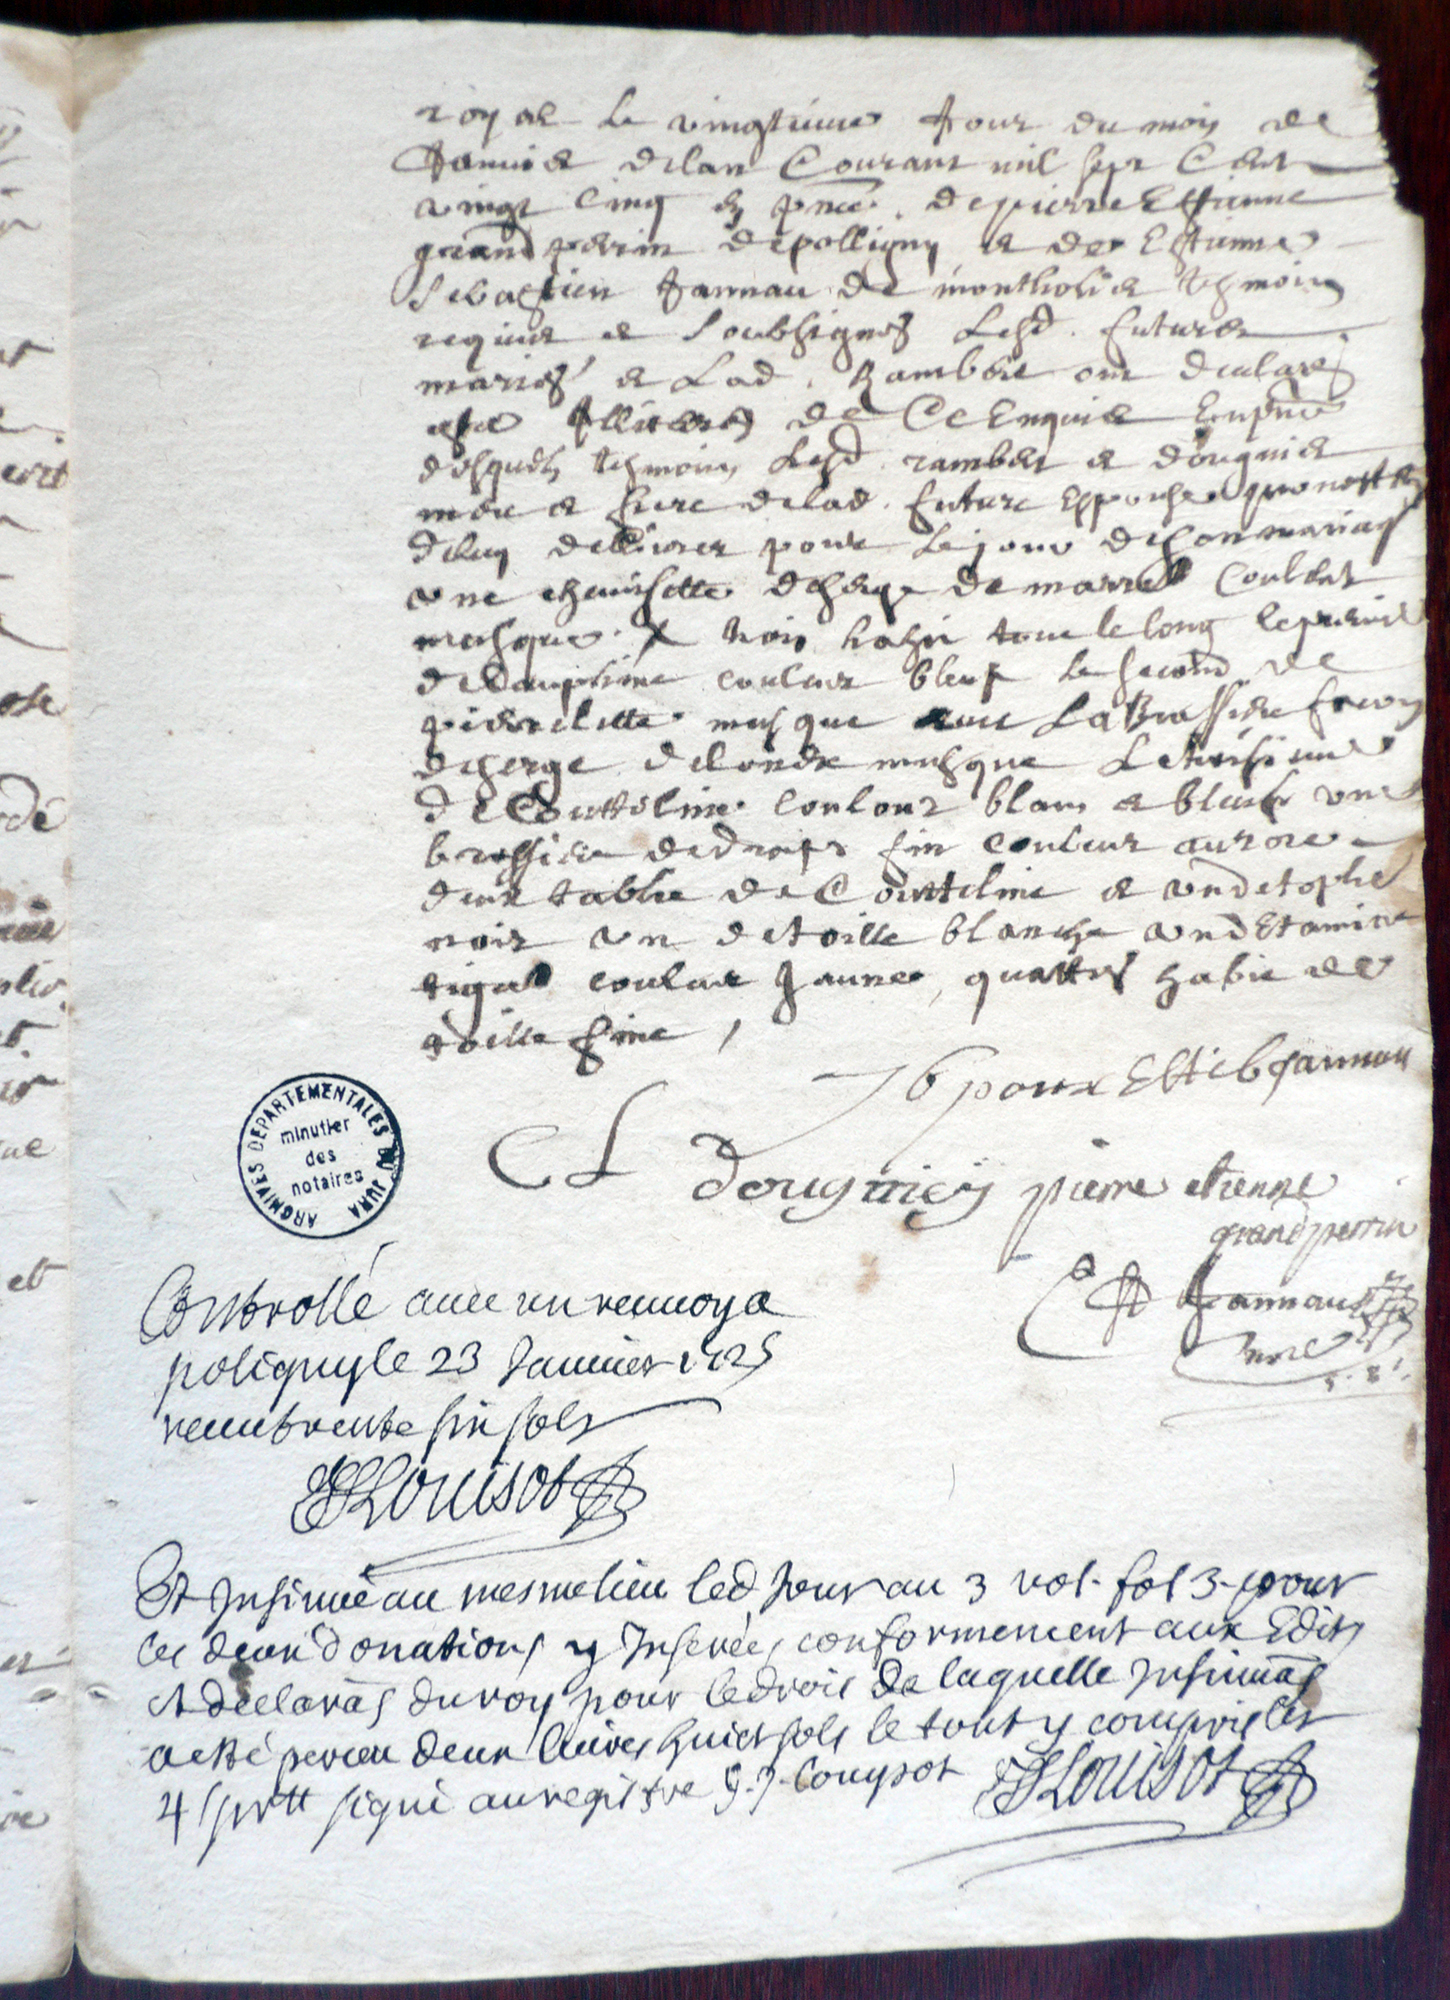 royal le vingtieme Jour du mois de
Janvier delan Courant mil sept Cent
vingt cinq en pnce. de pierre Estienne
grand perrin de polligny et de Estienne
Sebastien Jannau de montholier tesmoins
requis et soubsignes Lesd. futures
maries et Lad. Rambert ont declarez
estre Illiteres de Ce Enquis En pnce
desquels tesmoins Lesd. rambert et dougnier
mere et frere delad. future Espouse
de luy dellivrer pour le jour de son mariage
une chemisette de serge de couleur
musque trois habit tout le long le premier
de dauphine couleur bleuf le second de
musque avec La Brassiere facon
de serge de londre musque Le troisieme
de Coutteline couleur blanc et bleuf une
brassiere de draps fin couleur aurore
deux tablie de Coutteline et un detophe
noir un de toille blanche un d'Etamine
couleur Jaune, quattres habie de
toille fine,
pour Jannau
Dougniey pierre etienne
grand perrin
Jannau
Nore
ARCHIVES DEPARTEMENTALES DU JURA
minutier
des
notaires
Controllé avec un renvoy a
poligny le 23 Janvier 1725
receu trente six sols
Louisot
Et Insinué au mesme lieu led Jour au 3 vol. fol 3. pour
les deux donations y Inserées conformement aux Edits
et declaraons du roy pour le droit de laquelle Insinuaon
a esté perceu deux livres huict sols le tout y compris les
4 s pr tt signé au registre J. J. Louysot Louisot